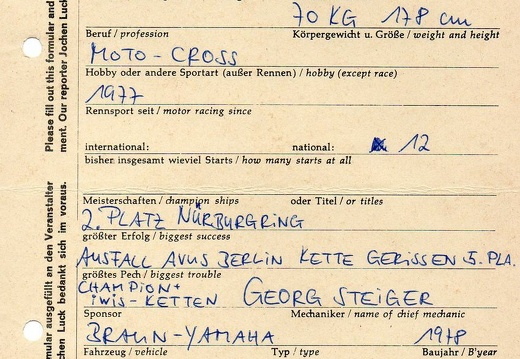 70 KG 178 cm
Beruf / profession Körpergewicht u. Größe / weight and height
MOTO-CROSS
Hobby oder andere Sportart (außer Rennen) / hobby (except race)
1977
Rennsport seit / motor racing since
international: national: 12
bisher insgesamt wieviel Starts / how many starts at all
Meisterschaften / champion ships oder Titel / or titles
2. PLATZ NÜRBURGRING
größter Erfolg / biggest success
AUSFALL AVUS BERLIN KETTE GERISSEN 5. PLA.
größtes Pech / biggest trouble
CHAMPION+
iWiS-KETTEN GEORG STEIGER
Sponsor Mechaniker / name of chief mechanic
BRAUN-YAMAHA 1978
Fahrzeug / vehicle Typ / type Baujahr / B'year
Please fill out this formular and
ment. Our reporter Jochen Luck
mular ausgefüllt an den Veranstalter
chen Luck bedankt sich im voraus.